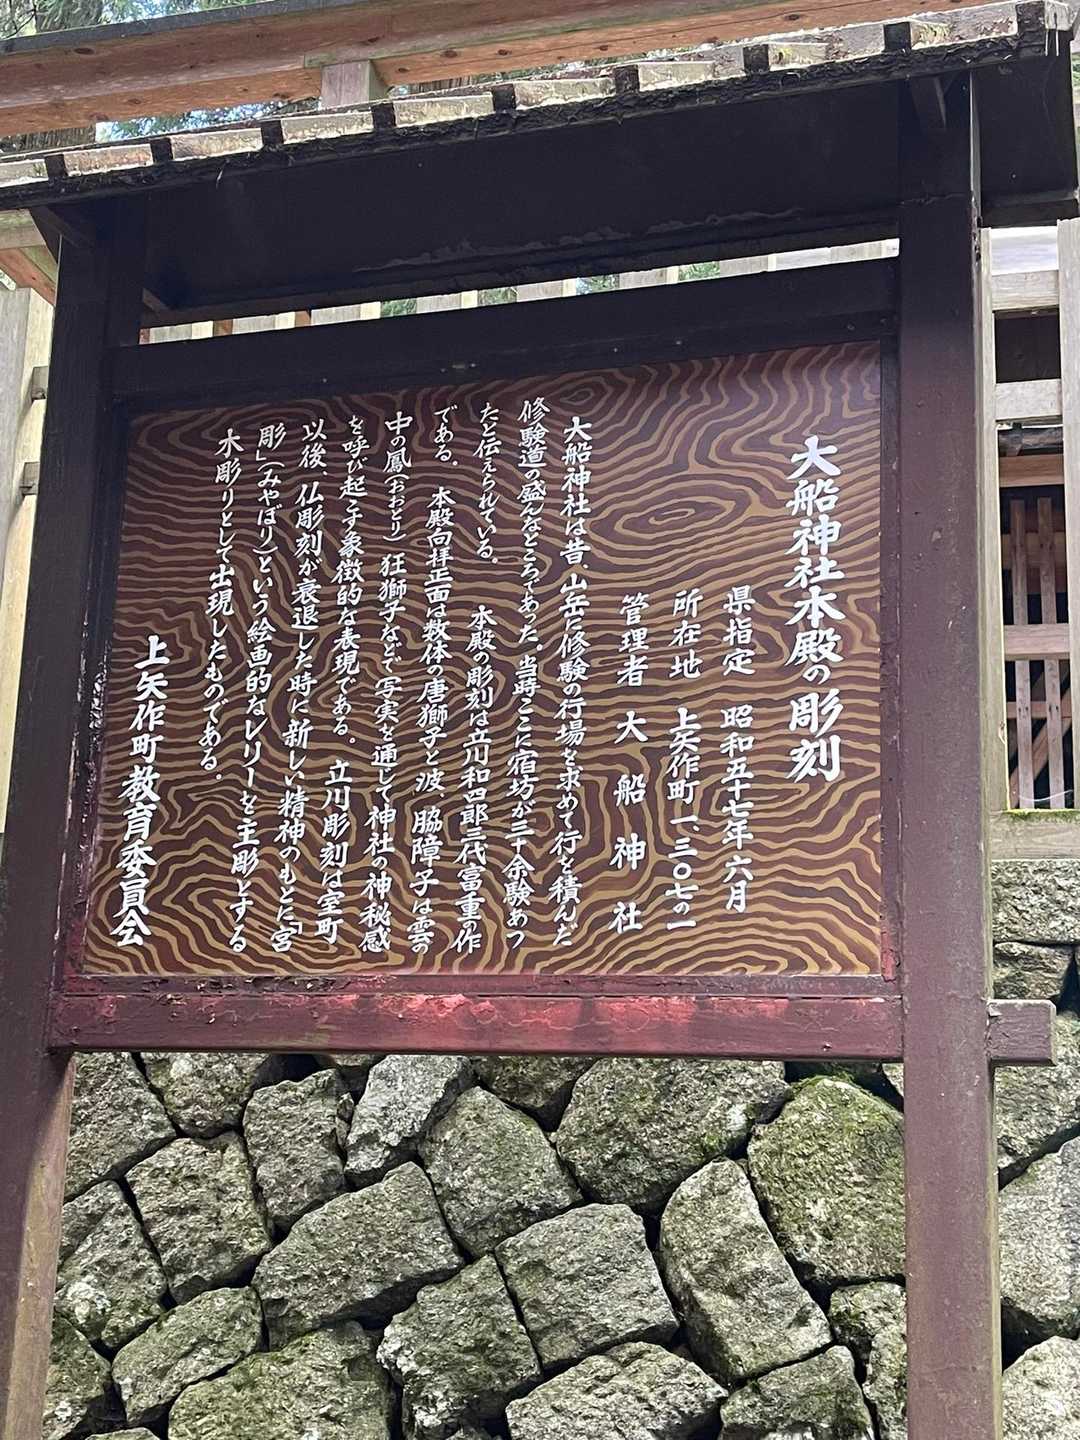 大船神社本殿の彫刻
県指定 昭和五十七年六月
所在地 上矢作町一、三〇七の一
管理者 大船神社
大船神社は昔、山岳に修験の行場を求めて行を積んだ
修験道の盛んなところであった。当時ここに宿坊が三十余験あっ
たと伝えられている。 本殿の彫刻は立川和四郎三代富重の作
である。 本殿向拝正面は数体の唐獅子と波 脇障子は雲の
中の鳳(おおとり) 狂獅子などで写実を通じて神社の神秘感
を呼び起こす象徴的な表現である。 立川彫刻は室町
以後、仏彫刻が衰退した時に新しい精神のもとに「宮
彫」(みやぼり)という絵画的なレリーを主彫とする
木彫りとして出現したものである。
上矢作町教育委員会